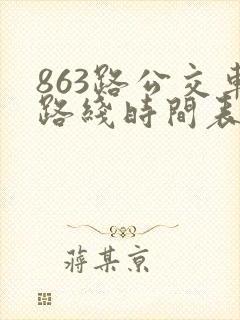 863路公交車
路綫時間表
蔣某京